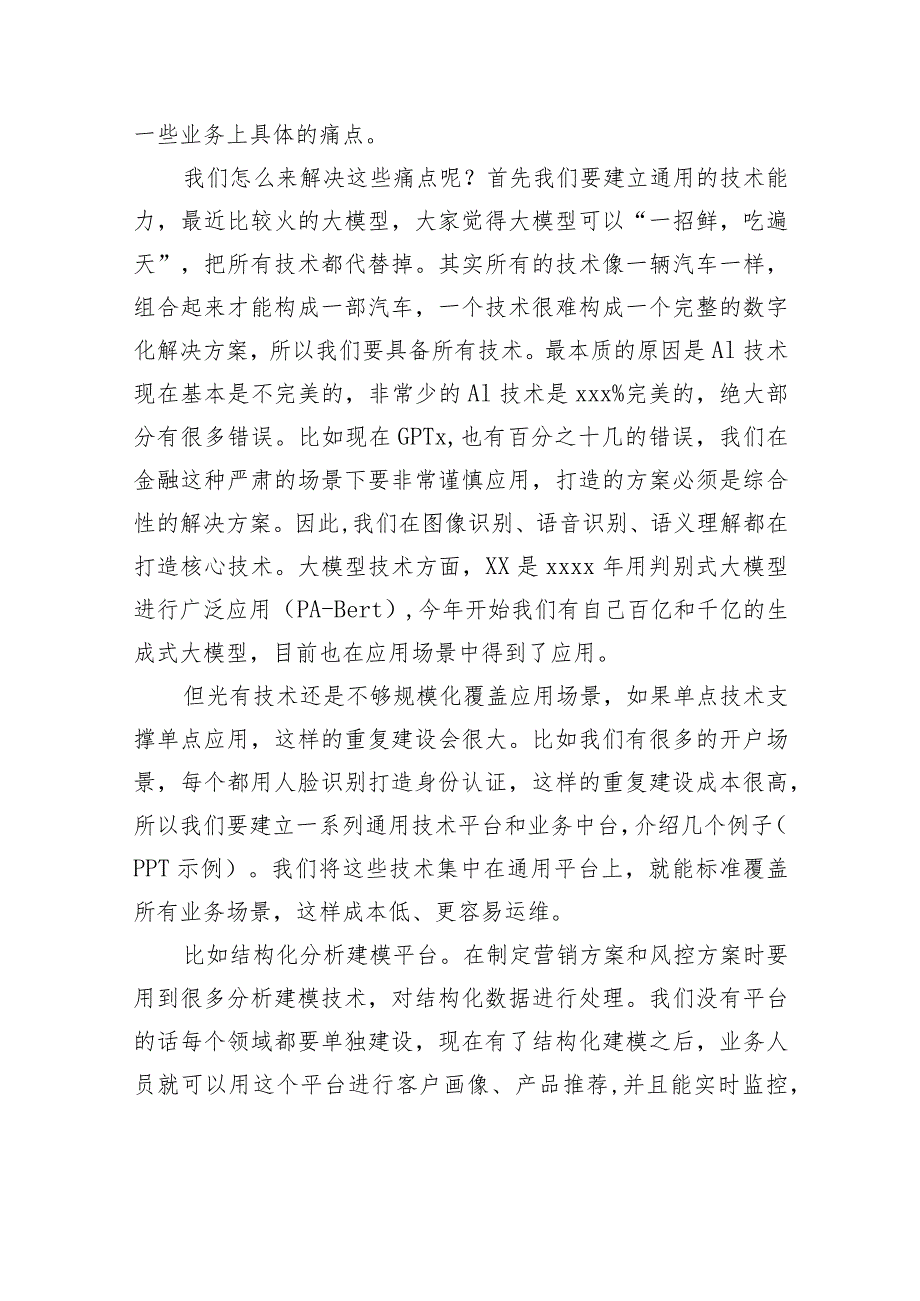 一些业务上具体的痛点。
我们怎么来解决这些痛点呢？首先我们要建立通用的技术能
力，最近比较火的大模型，大家觉得大模型可以“一招鲜，吃遍
天”，把所有技术都代替掉。其实所有的技术像一辆汽车一样，
组合起来才能构成一部汽车，一个技术很难构成一个完整的数字
化解决方案，所以我们要具备所有技术。最本质的原因是Al技术
现在基本是不完美的，非常少的Al技术是xxx%完美的，绝大部
分有很多错误。比如现在GPTx,也有百分之十几的错误，我们在
金融这种严肃的场景下要非常谨慎应用，打造的方案必须是综合
性的解决方案。因此,我们在图像识别、语音识别、语义理解都在
打造核心技术。大模型技术方面，XX是xxxx年用判别式大模型
进行广泛应用（PA-Bert）,今年开始我们有自己百亿和千亿的生
成式大模型，目前也在应用场景中得到了应用。
但光有技术还是不够规模化覆盖应用场景，如果单点技术支
撑单点应用，这样的重复建设会很大。比如我们有很多的开户场
景，每个都用人脸识别打造身份认证，这样的重复建设成本很高，
所以我们要建立一系列通用技术平台和业务中台,介绍几个例子（
PPT示例）。我们将这些技术集中在通用平台上，就能标准覆盖
所有业务场景，这样成本低、更容易运维。
比如结构化分析建模平台。在制定营销方案和风控方案时要
用到很多分析建模技术，对结构化数据进行处理。我们没有平台
的话每个领域都要单独建设，现在有了结构化建模之后，业务人
员就可以用这个平台进行客户画像、产品推荐,并且能实时监控，